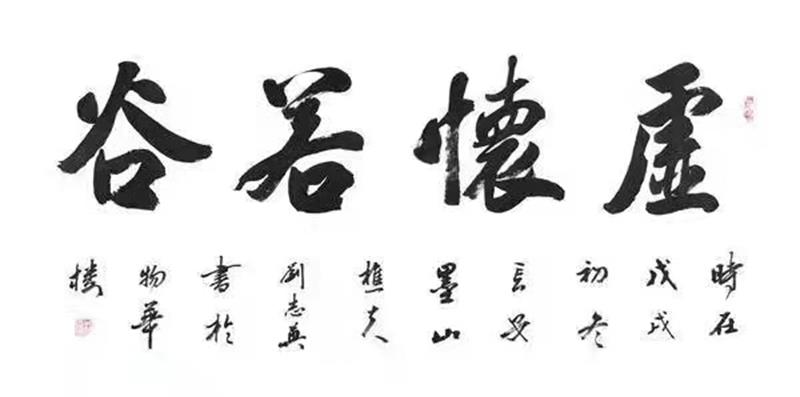 虛懷若谷
時在
戊戌
初冬
長安
墨山
樵夫
劉志英
書於
物華
樓